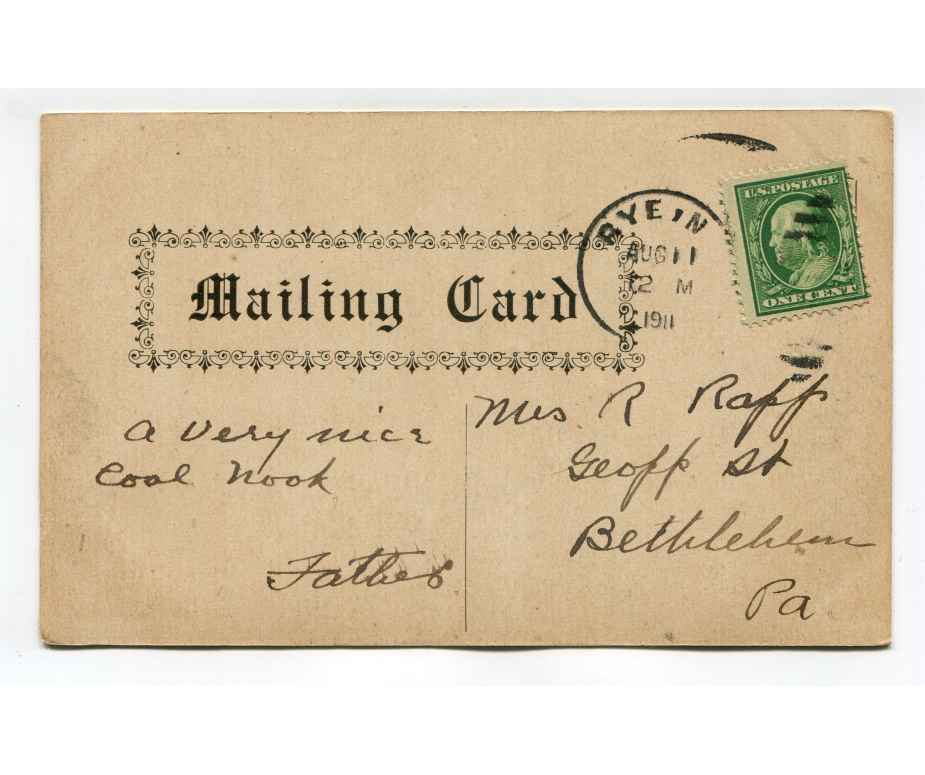 U.S. POSTAGE
ONE CENT
RYE, N
AUG 11
12 M
1911
Mailing Card
a very nice
Cool Nook
Father
Mrs R Rapp
Geopp St
Bethlehem
Pa